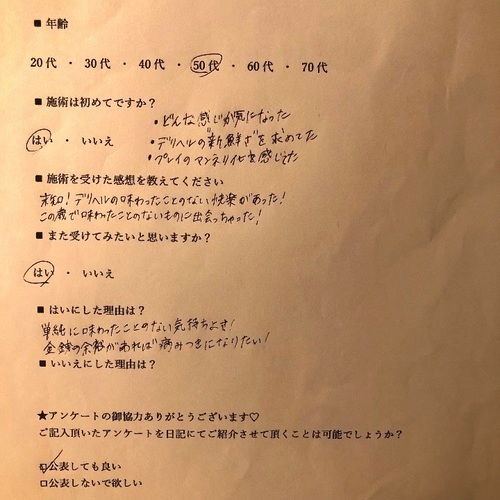 ■ 年齢
20代 ・ 30代 ・ 40代 ・ 50代 ・ 60代 ・ 70代
■ 施術は初めてですか?
・どんな感じか気になった
はい ・ いいえ
・デリヘルの"新鮮さ"を求めてた
・プレイのマンネリ化を感じてた
■ 施術を受けた感想を教えてください
未知!デリヘルの味わったことのない快楽があった!
この歳で味わったことのないものに出会っちゃった!
■ また受けてみたいと思いますか?
はい ・ いいえ
■ はいにした理由は?
単純に味わったことのない気持ちよさ!
金銭の余裕があれば病みつきになりたい!
■ いいえにした理由は?
★アンケートの御協力ありがとうございます♡
ご記入頂いたアンケートを日記にてご紹介させて頂くことは可能でしょうか?
□公表しても良い
□公表しないで欲しい